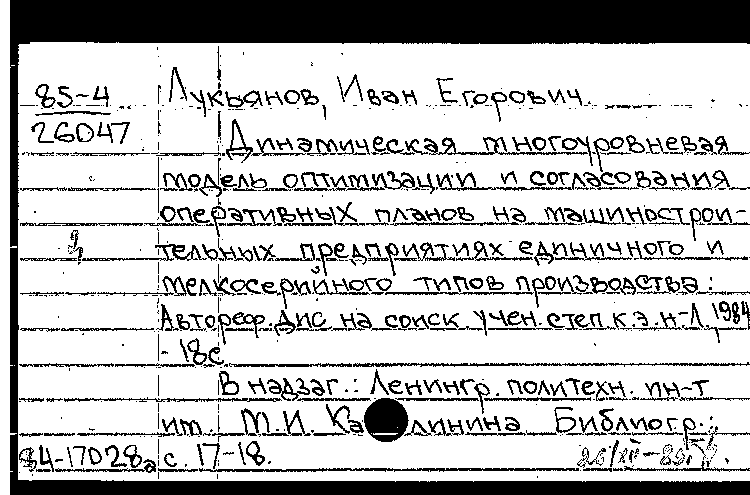 85-4
26047
Лукьянов, Иван Егорович
Динамическая многоуровневая
модель оптимизации и согласования
оперативных планов на машинострои-
тельных предприятиях единичного и
мелкосерийного типов производства:
Автореф. дис на соиск. учен. степ к.э.н-Л. 1984
- 18с
В надзаг.: Ленингр. политехн. ин-т
им. М.И. Ка линина Библиогр.:
с. 17-18.
84-17028а